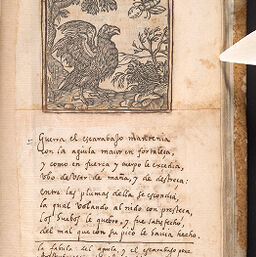 Guerra el escarabajo mantenia
con la aguila mayor en fortaleza,
y como en fuerça y cuerpo le excedia,
uso de maña, y de destreça:
entre las plumas della se escondia,
la qual volando al nido con presteça,
los huebos le quebro, y fue satisfecho,
del mal que con su pico le havia hecho
la fabula del aguila, y el escarabajo